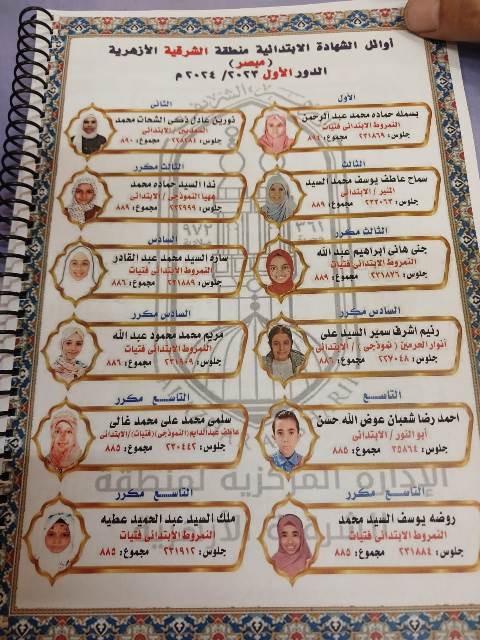 أوائل الشهادة الابتدائية منطقة الشرقية الأزهرية
(مبصر)
الدور الأول ٢٠٢٣/ ٢٠٢٤ م
الأول
بسمله حماده محمد عبد الرحمن
النمروط الابتدائى فتيات
جلوس: ٢٣١٨٦٩ مجموع: ٨٩٤
الثانى
نورين عادل زكى الشحات محمد
/ الابتدائى
مجموع: ٨٩٠
الثالث
سماح عاطف يوسف محمد السيد
المنير / الابتدائى
جلوس: ٢٣٢٠٦٣ مجموع: ٨٨٩
الثالث مكرر
ندا السيد حماده محمد
ههيا النموذجى / الابتدائى
جلوس: ٢٣٢٩٩٩ مجموع: ٨٨٩
الثالث مكرر
جنى هانى ابراهيم عبد الله
النمروط الابتدائى فتيات
جلوس: ٢٣١٨٧٦ مجموع: ٨٨٩
السادس
ساره السيد محمد عبد القادر
النمروط الابتدائى فتيات
جلوس: ٢٣١٨٨٩ مجموع: ٨٨٦
السادس مكرر
رنيم اشرف سمير السيد على
أنوار الحرمين (نموذجى) / الابتدائى
جلوس: ٢٢٧٠٤٨ مجموع: ٨٨٦
السادس مكرر
مريم محمد محمود عبد الله
النمروط الابتدائى فتيات
جلوس: ٢٣١٩٠٩ مجموع: ٨٨٦
التاسع
احمد رضا شعبان عوض الله حسن
أبو النور / الابتدائى
جلوس: ٣٥٨٦٤ مجموع: ٨٨٥
التاسع مكرر
سلمى محمد على محمد غالى
عاطف عبدالدايم (النموذجى) (فتيات) / الابتدائى
جلوس: ٢٣٠٤٤٢ مجموع: ٨٨٥
التاسع مكرر
روضه يوسف السيد محمد
النمروط الابتدائى فتيات
جلوس: ٢٣١٨٨٤ مجموع: ٨٨٥
التاسع مكرر
ملك السيد عبد الحميد عطيه
النمروط الابتدائى فتيات
جلوس: ٢٣١٩١٢ مجموع: ٨٨٥
٩٧٢
٣٦١
الإدارة المركزية لمنطقة